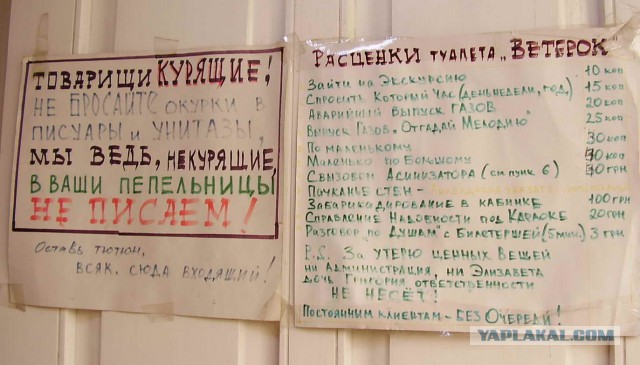 ТОВАРИЩИ КУРЯЩИЕ!
НЕ БРОСАЙТЕ ОКУРКИ В
ПИСУАРЫ И УНИТАЗЫ,
МЫ ВЕДЬ, НЕКУРЯЩИЕ,
В ВАШИ ПЕПЕЛЬНИЦЫ
НЕ ПИСАЕМ!
Оставь тютюн,
всяк, сюда входящий!
РАСЦЕНКИ ТУАЛЕТА „ВЕТЕРОК"
Зайти на Экскурсию 10 коп
Спросить Который Час (день недели, год) 15 коп
Аварийный Выпуск Газов 20 коп
Выпуск Газов „Отгадай Мелодию" 25 коп
По маленькому 30 коп
Маленько по Большому коп
С вызовом Асинизатора (см пунк 6) грн
Пачканье стен -
Забарикадирование в кабинке 100 грн
Справление Надобности под Караоке 20 грн
Разговор „по Душам" с Билетершей (5 мин.) 3 грн
P.S. За утерю ценных Вещей
ни Администрация, ни Элизавета
дочь Григория ответственности
НЕ НЕСЁТ!
Постоянным клиентам - БЕЗ Очереди!
YAPLAKAL.COM